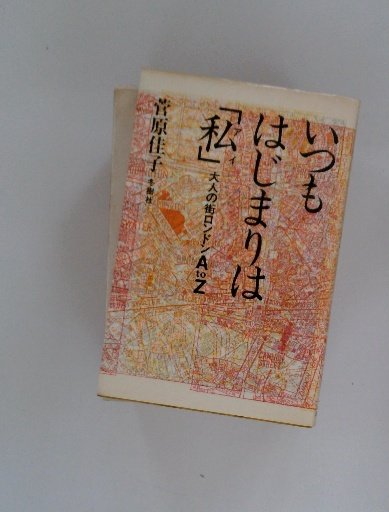 いつも
はじまりは
「私」
アイ
大人の街ロンドンA to Z
菅原佳子
冬樹社